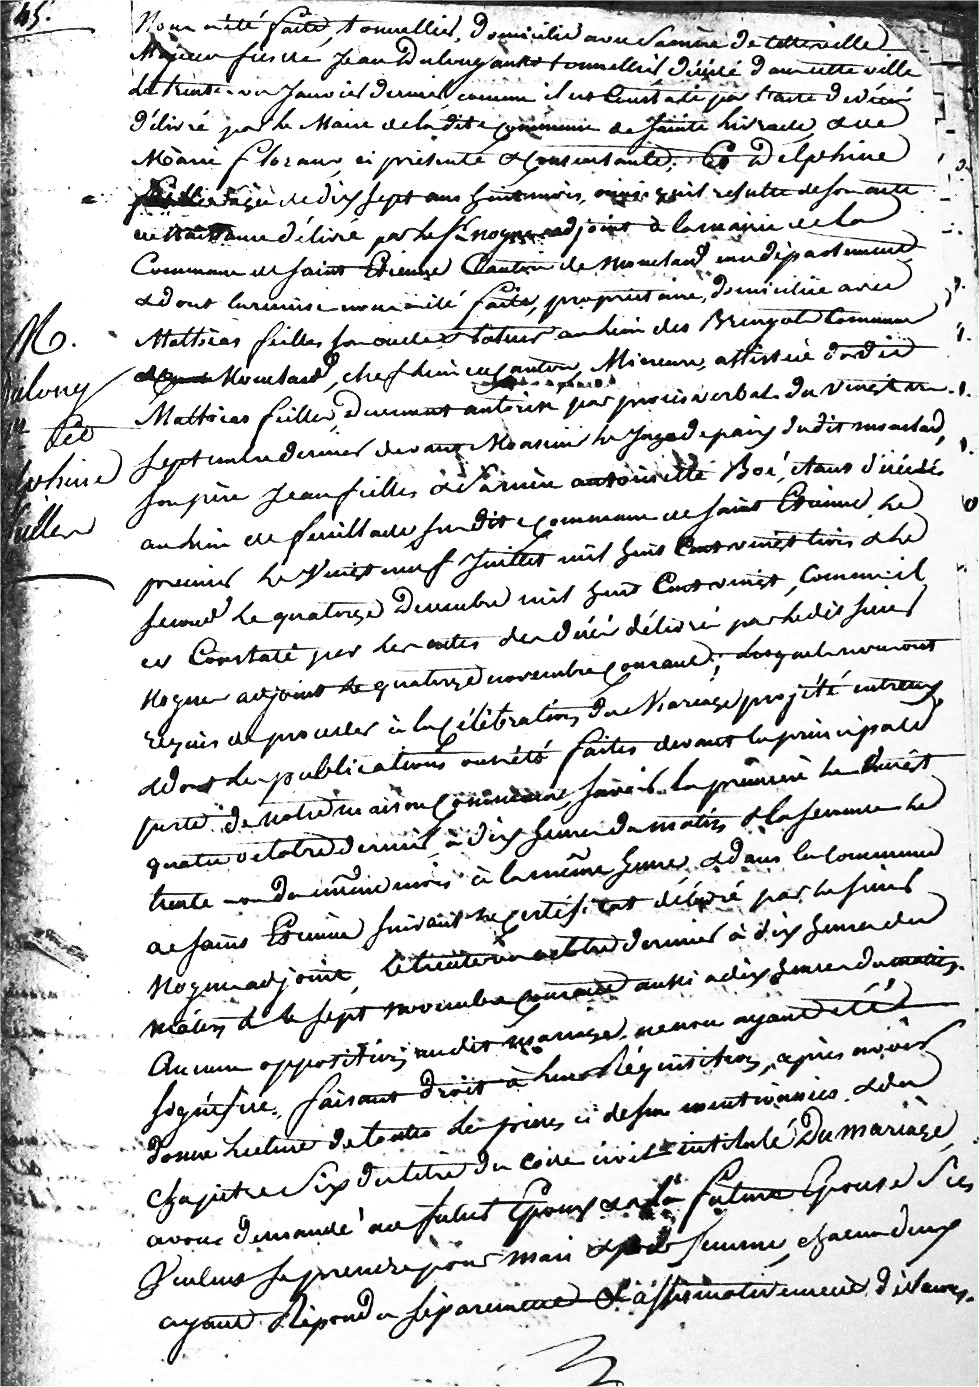 45.
Nous a été faite, tonnellier, domicilié avec sa mère de cette ville
Majeur fils de Jean Dulong aussi tonnellier décédé dans cette ville
le trente un Janvier dernier comme il est Constaté par l'acte de décès
délivré par le Maire de la dite Commune de Sainte Livrade, & de
Marie Floran, ci présente & consentante; Et Delphine
Feilles âgée de dix sept ans huit mois, ainsi qu'il résulte de son acte
de naissance délivré par le Sr. Noguer adjoint à la mairie de la
Commune de Saint Etienne Canton de Monclard même département
& dont la remise nous a été faite, propriétaire, domiciliée avec
Mathias feilles son oncle & tuteur au lieu des Commune
de Monclard, chef lieu de Canton, Mineure, assistée dudit
Mathias feilles, dument autorisé par procès verbal du vingt un
Septembre dernier devant Monsieur le Juge de paix dudit monclard,
son père Jean feilles & sa mère antoinette Boé, étant décédés
au lieu de feuillade susdite Commune de Saint Etienne, le
premier le Vingt neuf Juillet mil huit Cent vingt trois & le
second le quatorze Décembre mil huit Cent vingt, comme il
est Constaté par les actes de décès délivrés par le dit sieur
Noguer adjoint le quatorze novembre Courant; lesquels nous ont
requis de procéder à la Célébration du Mariage projété entreux
& dont les publications ont été faites devant la principale
porte de notre maison Commune, savoir la première le vingt
quatre octobre dernier, à dix heures du matin & la seconde le
trente un du même mois à la même heure, & dans la commune
de Saint Etienne suivant le Certificat délivré par le sieur
Noguer adjoint, le trente un octobre dernier à dix heures du
matin & le sept novembre Courant aussi à dix heures du matin.
Aucune opposition audit mariage ne nous ayant été
signifiée, faisant droit à leur Réquisition, après avoir
donné lecture de toutes les pièces ci dessus mentionnées & du
Chapitre Six du titre du Code civil intitulé Du Mariage,
avons demandé au futur Epoux & à la future Epouse S'ils
Veulent se prendre pour mari & pour femme, chacun d'eux
ayant Répondu séparement & affirmativement, déclarons
M.
Dulong
et
Delphine
Feilles